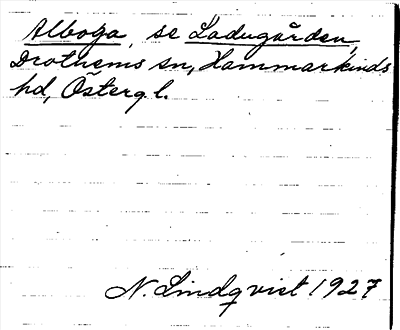 Alboga, se Ladugården,
Drothems sn, Hammarkinds
hd, Östergl.
N. Lindqvist 1927